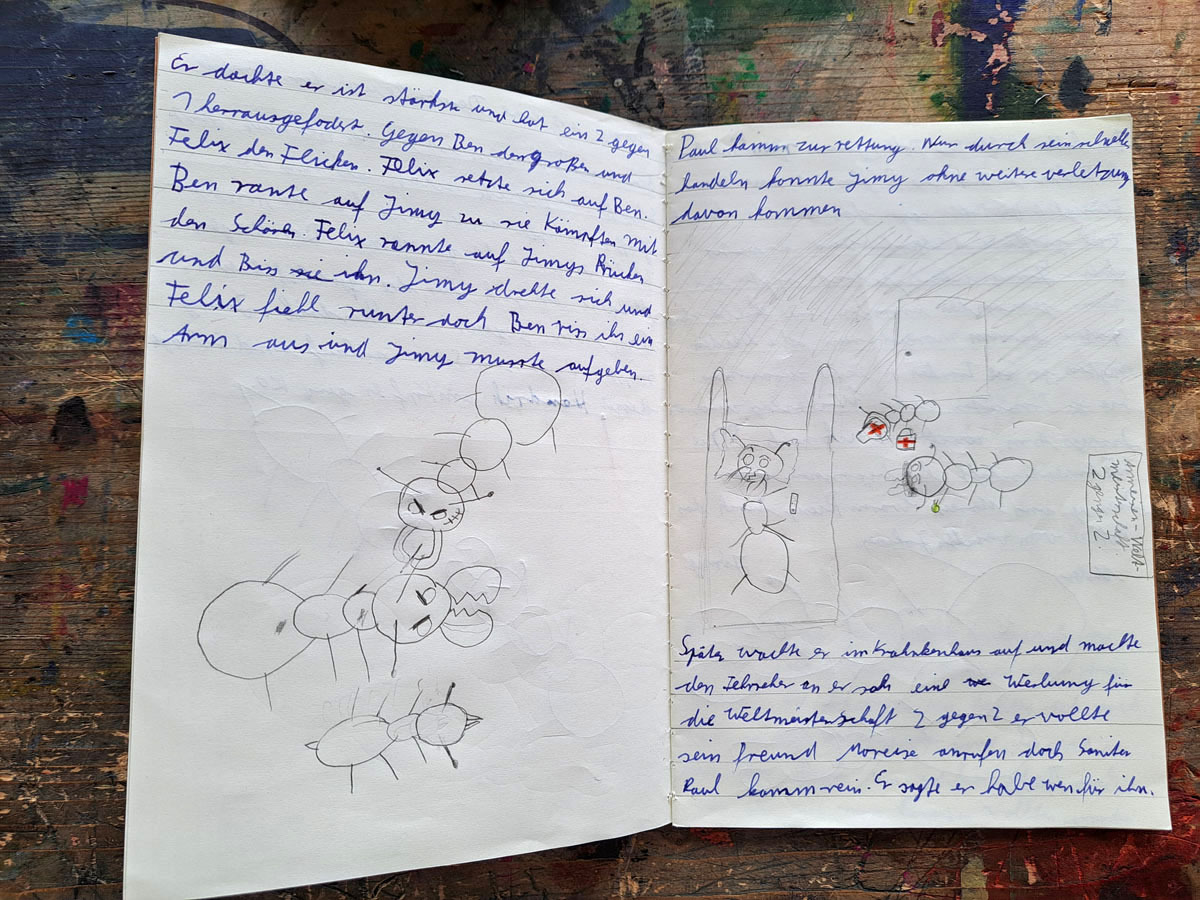 Er dachte er ist stärkste und hat ein 2 gegen
1 herrausgefodert. Gegen Ben den großen und
Felix den Flicken. Felix setzte sich auf Ben.
Ben rante auf Jimy zu sie Kämpften mit
den Schären. Felix rannte auf Jimys Rücken
und Biss ihn. Jimy drehte sich und
Felix fiehl runter doch Ben riss ihn ein
Arm aus und Jimy musste aufgeben.
Paul kamm zur rettung. Nur durch sein schnelles
handeln konnte Jimy ohne weitere verletzung
davon kommen
Ameisen-Welt-
meisterschaft
2 gegen 2
Später wachte er im Krahnkenhaus auf und machte
den Fehrseher an er sah eine Werbung für
die Weltmeisterschaft 2 gegen 2 er vollte
sein freund anrufen doch Saniter
Paul kamm rein. Er sagte er habe wen für ihn.